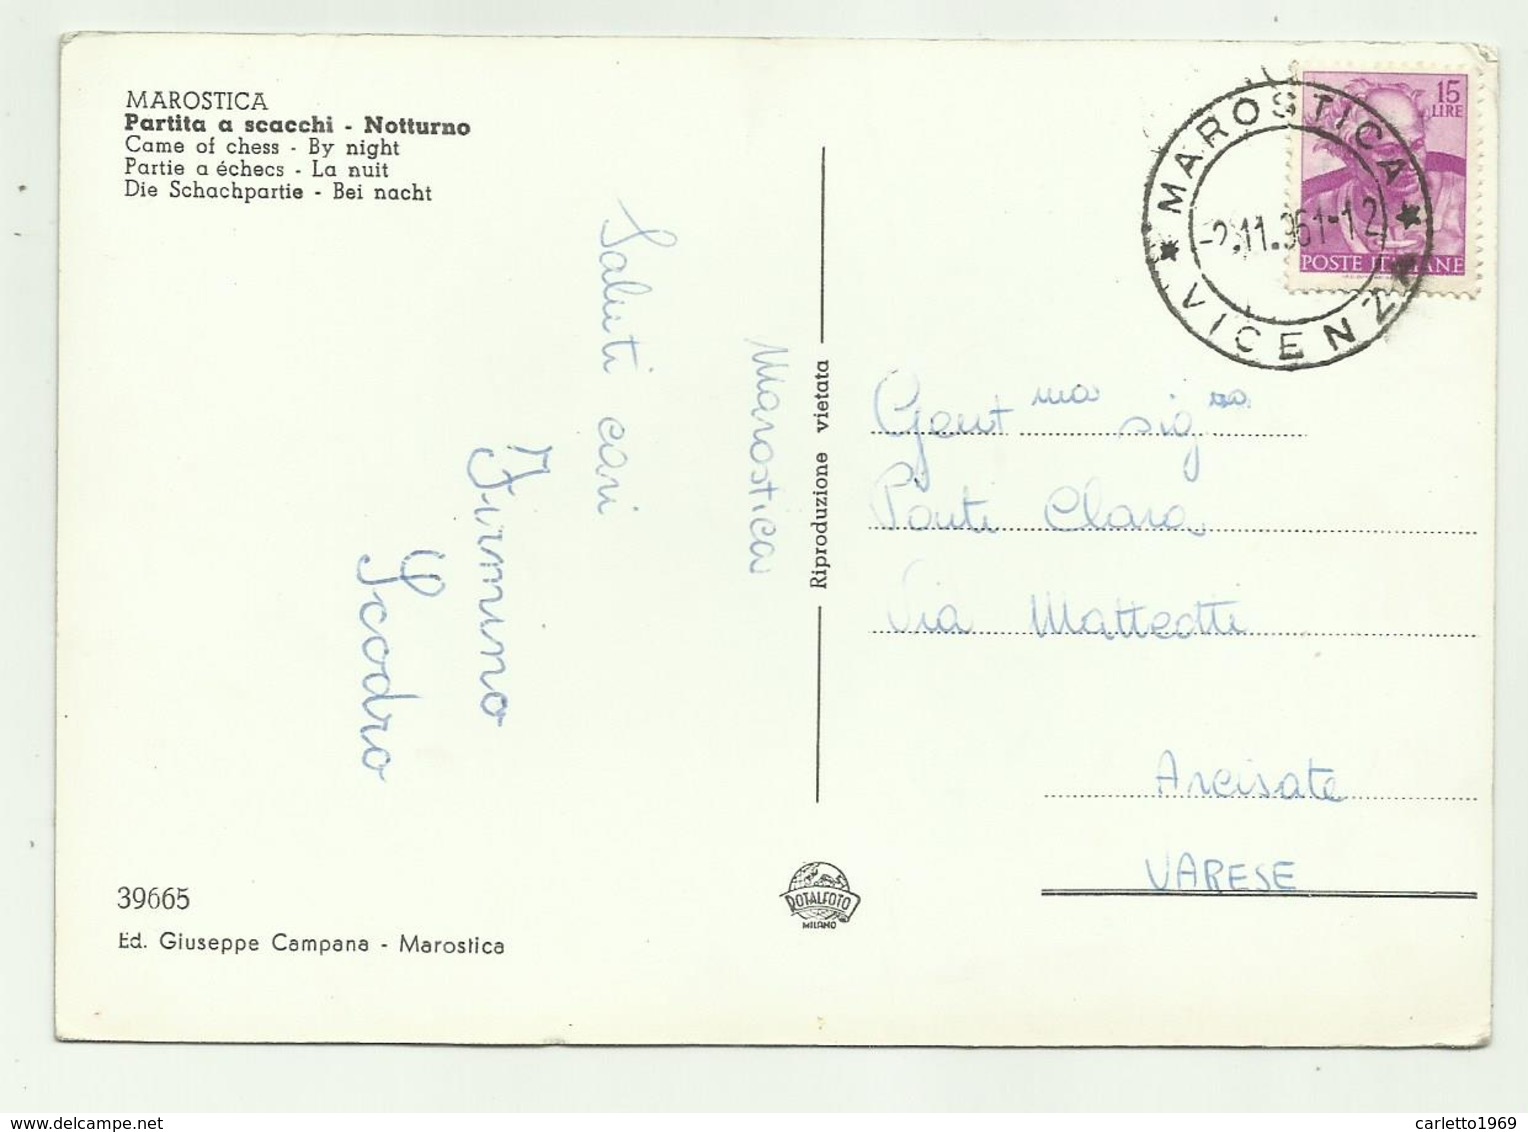 MAROSTICA
Partita a scacchi - Notturno
Came of chess - By night
Partie a échecs - La nuit
Die Schachpartie - Bei nacht
15
LIRE
POSTE ITALIANE
MAROSTICA
-2.11.961-12
VICENZA
Marostica
Saluti cari
Scodro
Riproduzione vietata
Gent ma sig ra
Ponti Clara
Via Matteotti
Arcisate
VARESE
39665
Ed. Giuseppe Campana - Marostica
ROTALFOTO
MILANO
www.delcampe.net
carletto1969